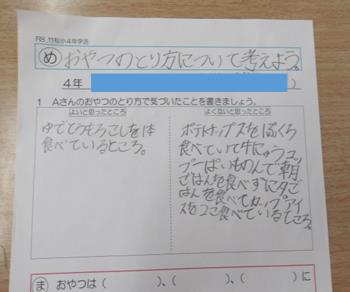 R8_竹松小4年学活
め おやつのとり方について考えよう。
4年 )
1 Aさんのおやつのとり方で気づいたことを書きましょう。
よいと思ったところ
ゆでとうもろこしを1本
食べているところ。
よくないと思ったところ
ポテトチップスをばくち
食べていて牛にゅうコッ
プ一ぱいものんで朝
ごはんを食べずに夕ご
はんを食べてカップアイ
スを2こ食べているところ。
ま おやつは( )、( )、( )に